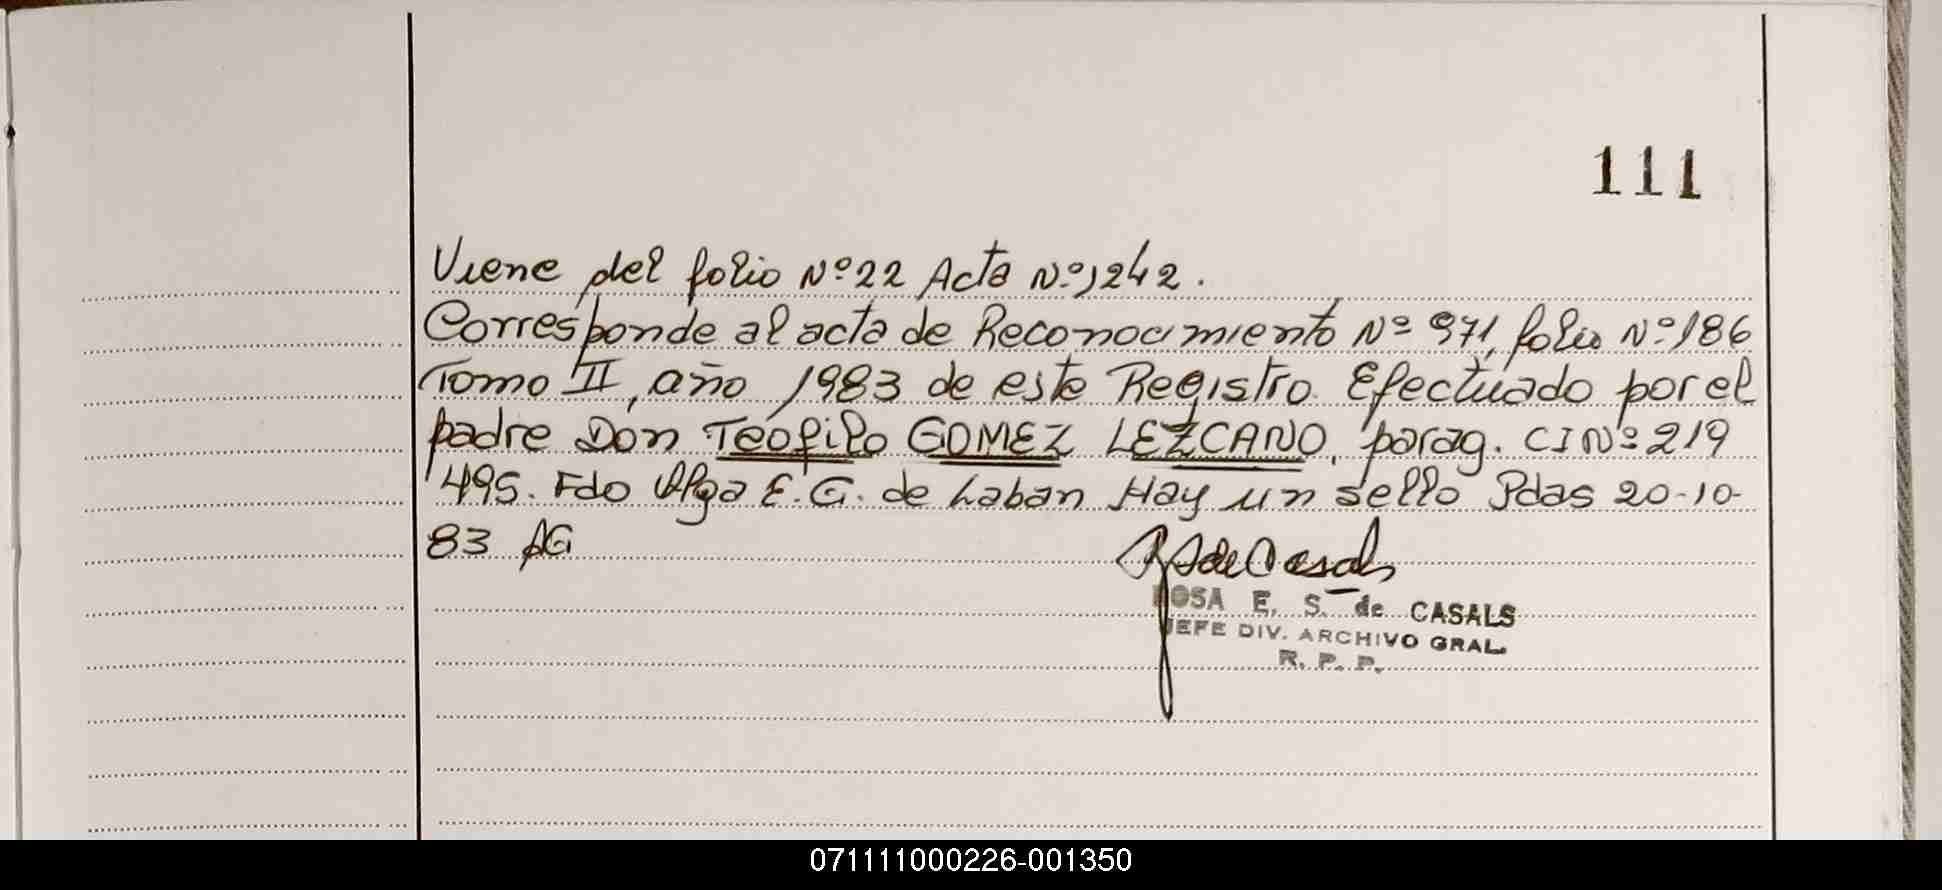 111
Viene del folio Nº 22 Acta Nº 1242.
Corresponde al acta de Reconocimiento Nº 971, folio Nº 186
Tomo II, año 1983 de este Registro. Efectuado por el
padre Don Teofilo GOMEZ LEZCANO, parag. CI Nº 219
495. Fdo Olga E. G. de Laban Hay un sello Pdas 20-10-
83 AG
ROSA E. S. de CASALS
JEFE DIV. ARCHIVO GRAL.
R. P. P.
071111000226-001350